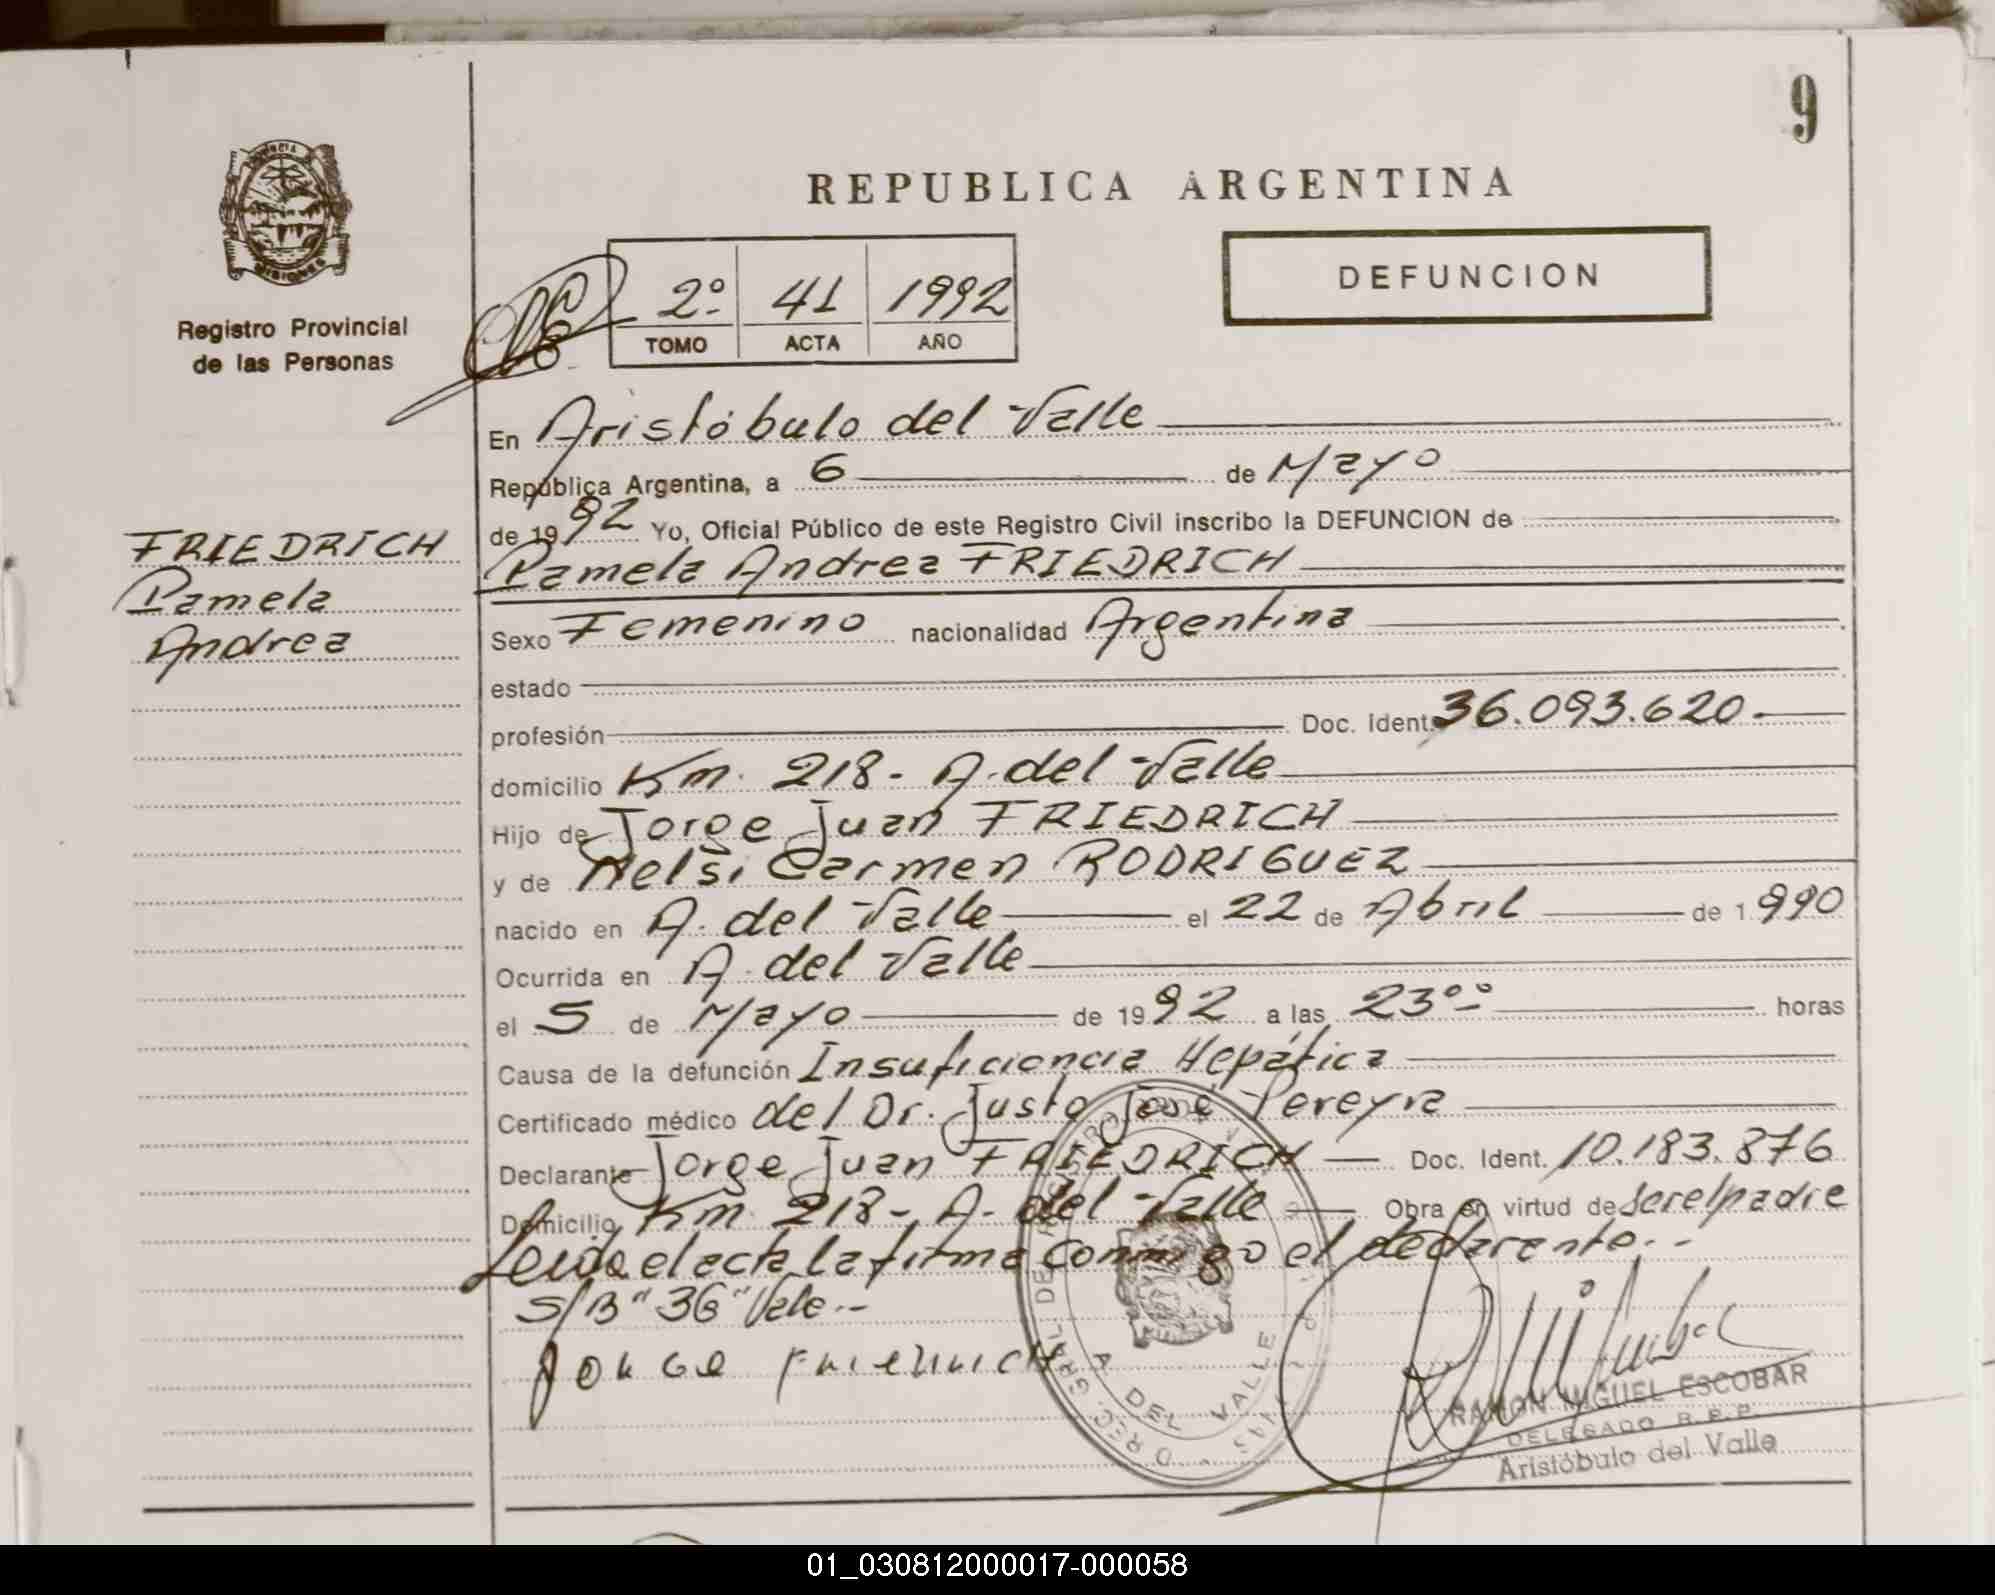 9
REPUBLICA ARGENTINA
PROVINCIA
MISIONES
Registro Provincial
de las Personas
2º 41 1992
TOMO ACTA AÑO
DEFUNCION
FRIEDRICH
Pamela
Andrea
En Aristóbulo del Valle
República Argentina, a 6 de Mayo
de 1992 Yo, Oficial Público de este Registro Civil inscribo la DEFUNCION de
Pamela Andrea FRIEDRICH
Sexo Femenino nacionalidad Argentina
estado
profesión Doc. Ident. 36.093.620.-
domicilio Km. 218- A. del Valle
Hijo de Jorge Juan FRIEDRICH
y de Nelsi Carmen RODRIGUEZ
nacido en A. del Valle el 22 de Abril de 1.990
Ocurrida en A. del Valle
el 5 de Mayo de 1992 a las 23ºº horas
Causa de la defunción Insuficiencia Hepática
Certificado médico del Dr. Justo José Pereyra
Declarante Jorge Juan FRIEDRICH Doc. Ident. 10.183.876
Domicilio Km. 218- A. del Valle Obra en virtud de ser el padre
Leida el acta la firma conmigo el declarante.-
S/B "36" Vale.-
A. DEL VALLE
RAMON MIGUEL ESCOBAR
DELEGADO R.P.P.
Aristóbulo del Valle
01_030812000017-000058